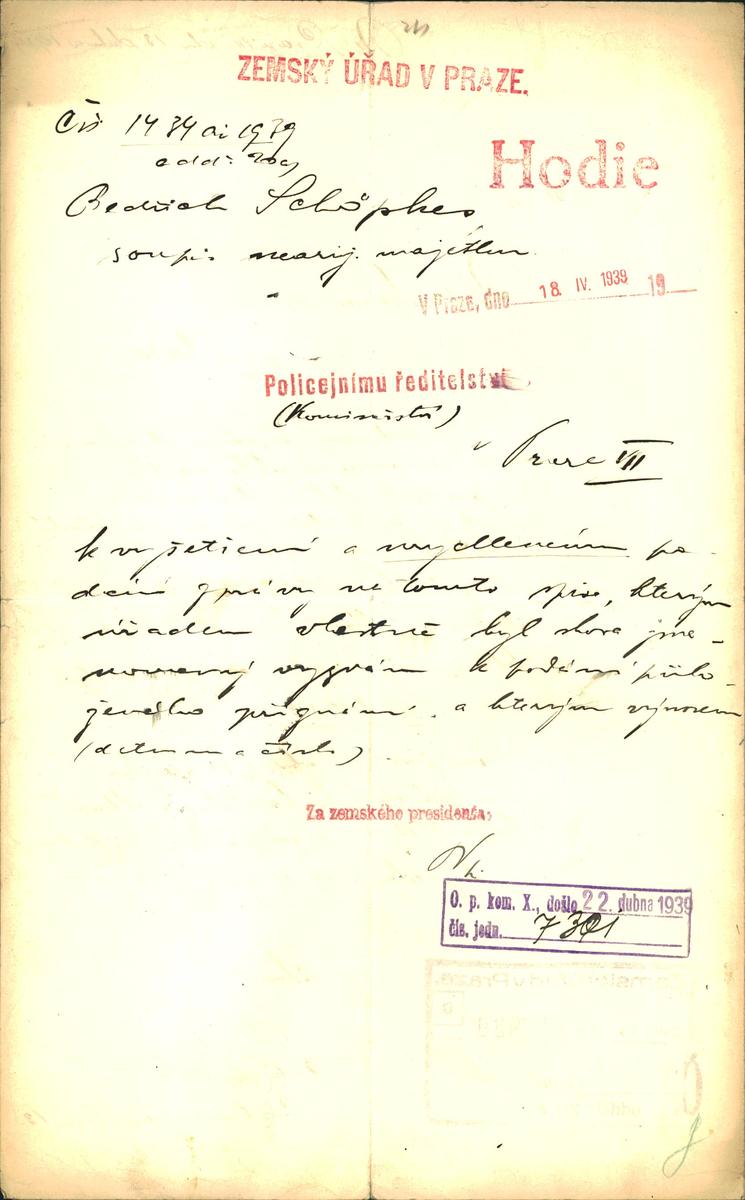 ZEMSKÝ ÚŘAD V PRAZE.
Čís 1434 ai 1939
odd:
Hodie
Bedřich
soupis nearij. majetku
V Praze, dne 18. IV. 1939 19
Policejnímu ředitelství
(Komisařství)
v Praze VII
k vyšetření a urychlenému po-
dání zprávy na tomto spise, kterým
úřadem vlastně byl shora jme-
novaný vyzván k podání přilo-
ženého přiznání, a kterým výnosem
(datum a číslo)
Za zemského presidenta:
O. p. kom. X., došlo 22. dubna 1939
čís. jedn. 7301
Zemský úřad v Praze.